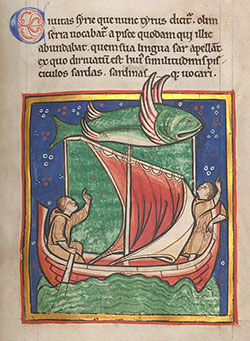 Ciuitas syrie que nunc tyrus dicit᷑. olim
serra uocabat᷑ a pisce quodam qui illic
abundabat. quem sua lingua sar apellant̅
ex quo diriuatum est hui᷒ similitudinis pis-
ciculos sardas. sardinas q: uocari.